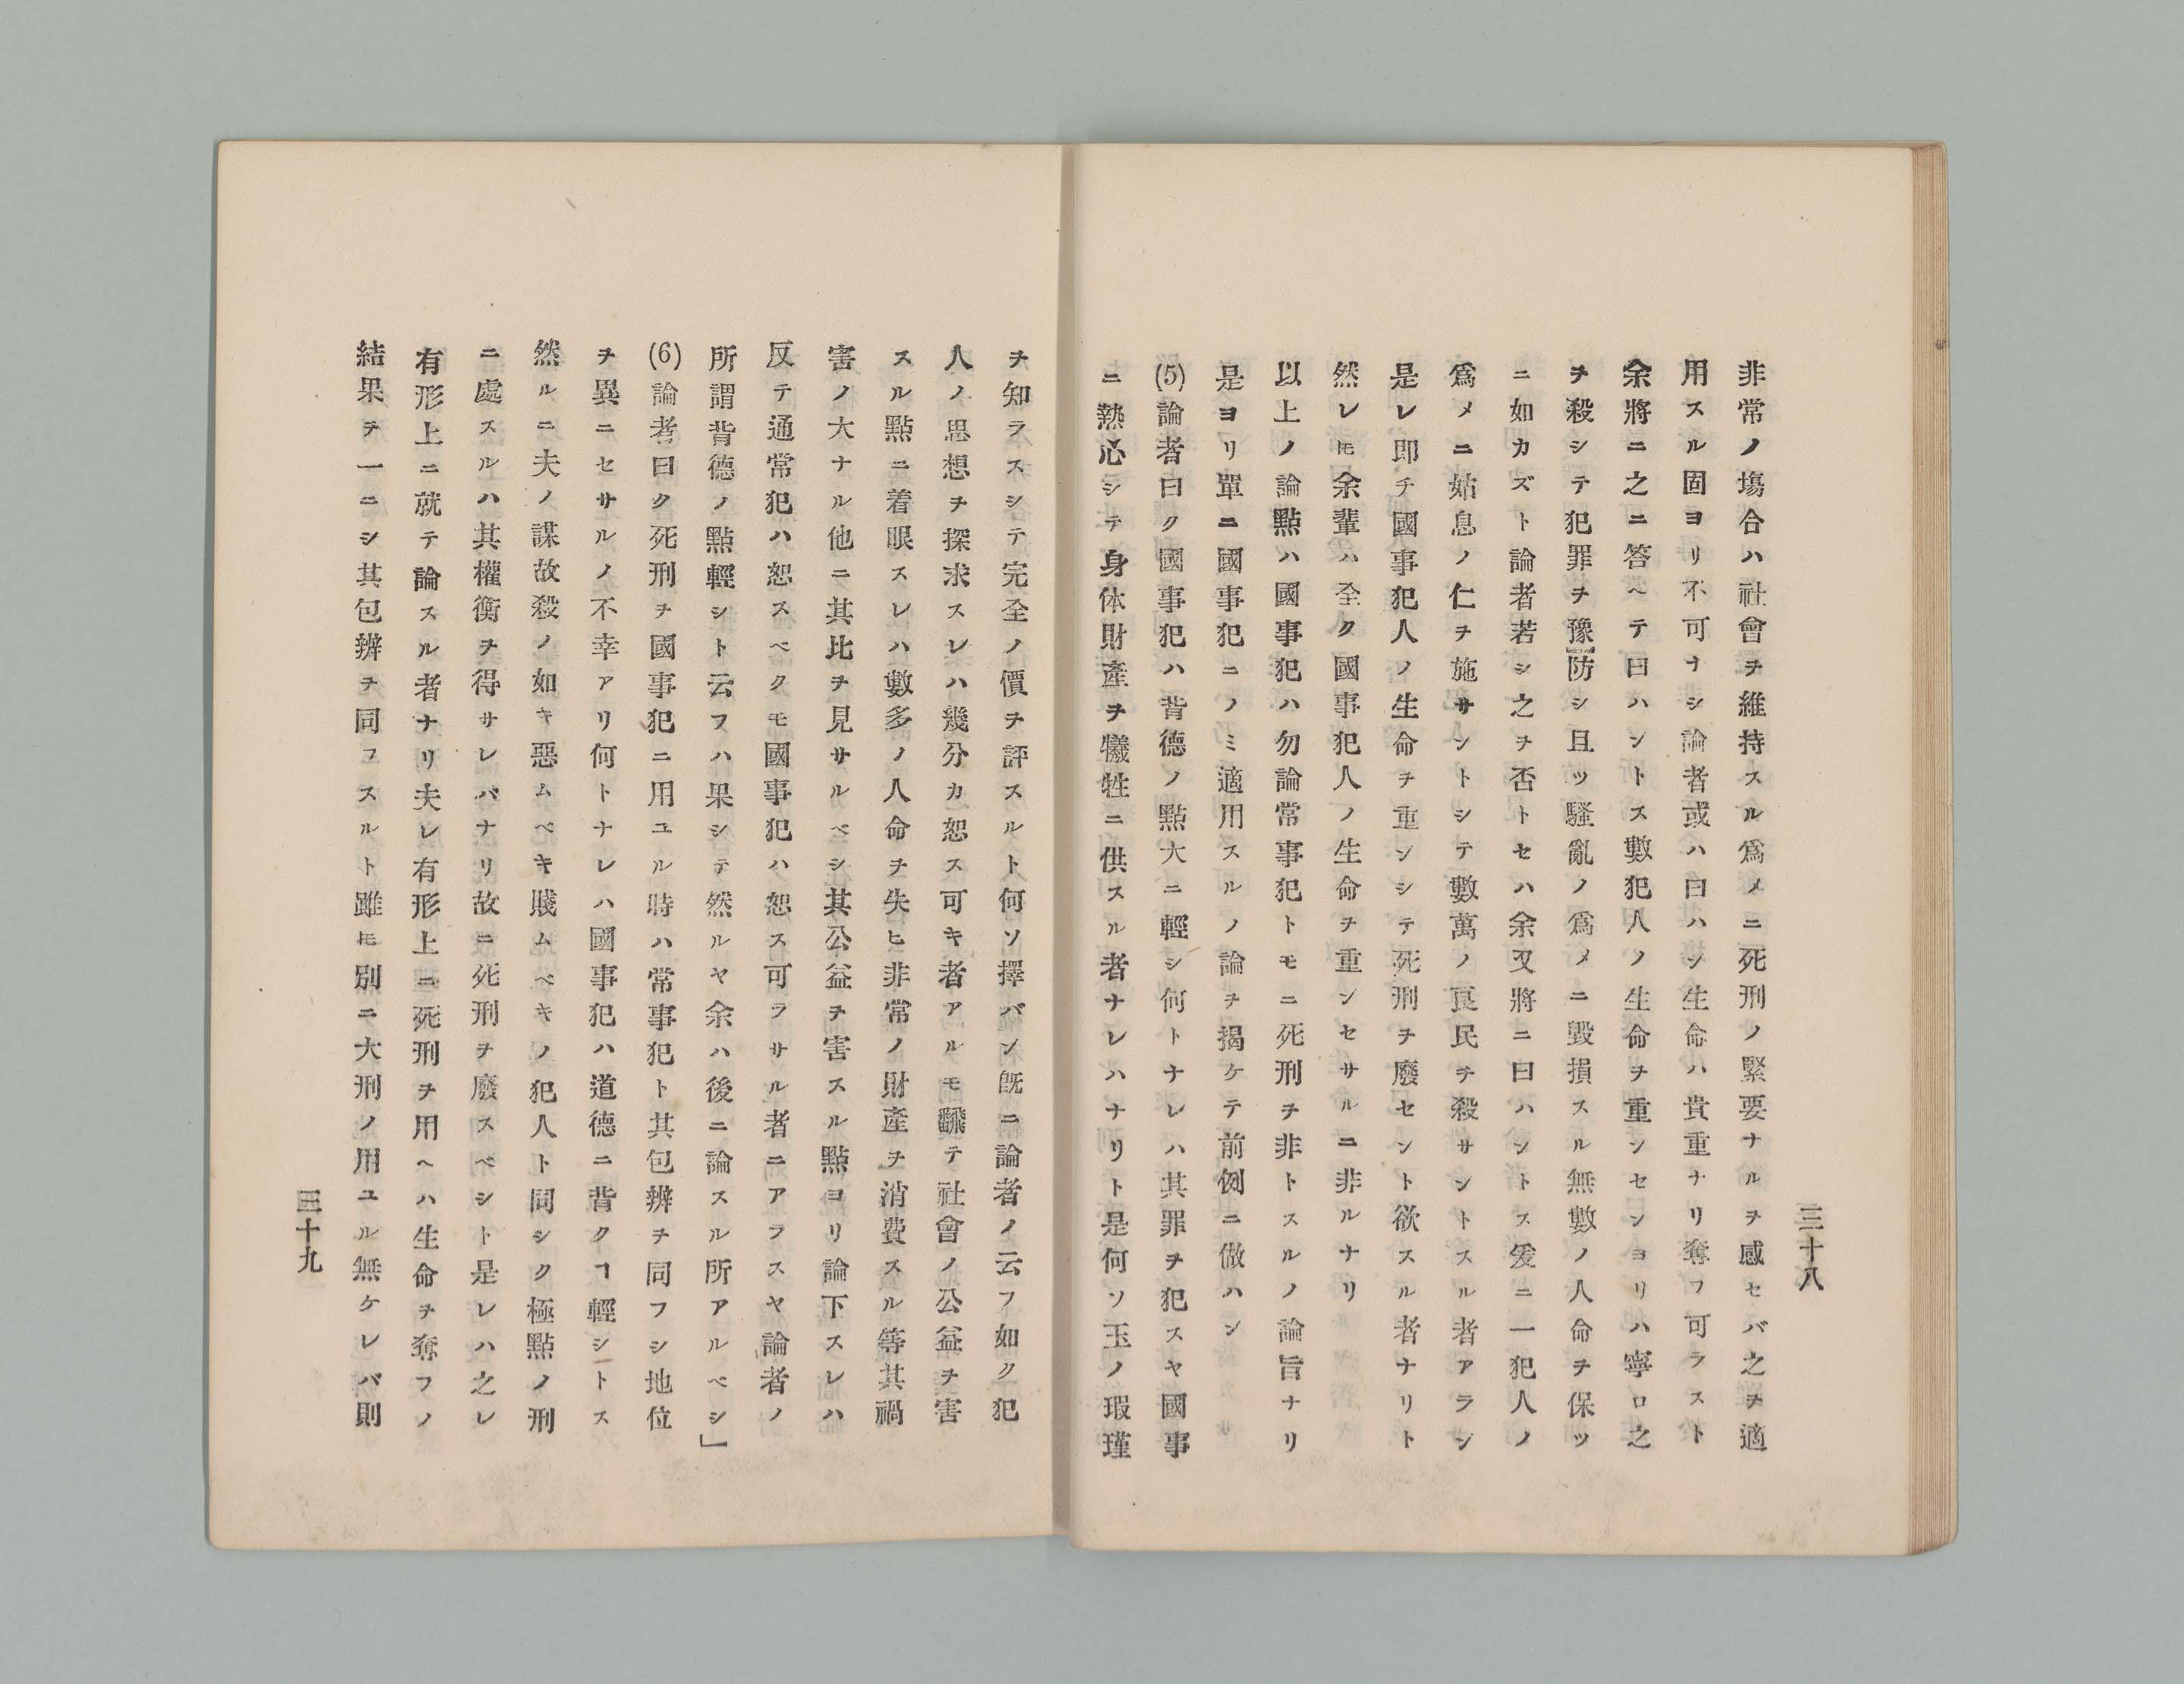 三十八
非常ノ塲合ハ社會ヲ維持スル爲メニ死刑ノ緊要ナルヲ感セバ之ヲ適
用スル固ヨリ不可ナシ論者或ハ曰ハン生命ハ貴重ナリ奪フ可ラスト
余將ニ之ニ答ヘテ曰ハントス數犯人ノ生命ヲ重ンセンヨリハ寧ロ之
ヲ殺シテ犯罪ヲ豫防シ且ツ騷亂ノ爲メニ毀損スル無數ノ人命ヲ保ツ
ニ如カズト論者若シ之ヲ否トセハ余又將ニ曰ハントス爰ニ一犯人ノ
爲メニ姑息ノ仁ヲ施サントシテ數萬ノ良民ヲ殺サントスル者アラン
是レ即チ國事犯人ノ生命ヲ重ンシテ死刑ヲ廢セント欲スル者ナリト
然レ𪜈余輩ハ全ク國事犯人ノ生命ヲ重ンセサルニ非ルナリ
以上ノ論點ハ國事犯ハ勿論常事犯トモニ死刑ヲ非トスルノ論旨ナリ
是ヨリ單ニ國事犯ニノミ適用スルノ論ヲ揭ケテ前例ニ倣ハン
(5)論者曰ク國事犯ハ背德ノ點大ニ輕シ何トナレハ其罪ヲ犯スヤ國事
ニ熱心シテ身体財產ヲ犧牲ニ供スル者ナレハナリト是何ソ玉ノ瑕瑾
ヲ知ラスシテ完全ノ價ヲ評スルト何ソ擇バン旣ニ論者ノ云フ如ク犯
人ノ思想ヲ探求スレハ幾分カ恕ス可キ者アルモ飜テ社會ノ公益ヲ害
スル點ニ着眼スレハ數多ノ人命ヲ失ヒ非常ノ財產ヲ消費スル等其禍
害ノ大ナル他ニ其比ヲ見サルベシ其公益ヲ害スル點ヨリ論下スレハ
反テ通常犯ハ恕スベクモ國事犯ハ恕ス可ラサル者ニアラスヤ論者ノ
所謂背德ノ點輕シト云フハ果シテ然ルヤ余ハ後ニ論スル所アルベシ」
(6)論者曰ク死刑ヲ國事犯ニ用ユル時ハ常事犯ト其包辨ヲ同フシ地位
ヲ異ニセサルノ不幸アリ何トナレハ國事犯ハ道德ニ背クヿ輕シトス
然ルニ夫ノ謀故殺ノ如キ惡ムベキ賤ムベキノ犯人ト同シク極點ノ刑
ニ處スルハ其權衡ヲ得サレバナリ故ニ死刑ヲ廢スベシト是レハ之レ
有形上ニ就テ論スル者ナリ夫レ有形上ニ死刑ヲ用ヘハ生命ヲ奪フノ
結果ヲ一ニシ其包辨ヲ同フスルト雖𪜈別ニ大刑ノ用ユル無ケレバ則
三十九